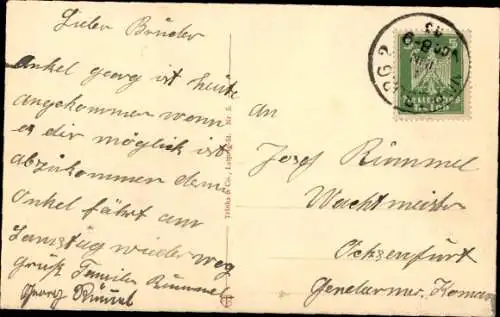 Lieber Bruder
Onkel georg ist heute
angekommen wenn
es dir möglich ist
abzukommen denn
Onkel fährt am
Samstag wieder weg
Gruß Familie Rümmel
Georg Rümmel
Trinks & Co., Leipzig-St. Nr. 5.
an
Josef Rümmel
Wachtmeister
Ochsenfurt
Gendarmer. Koman